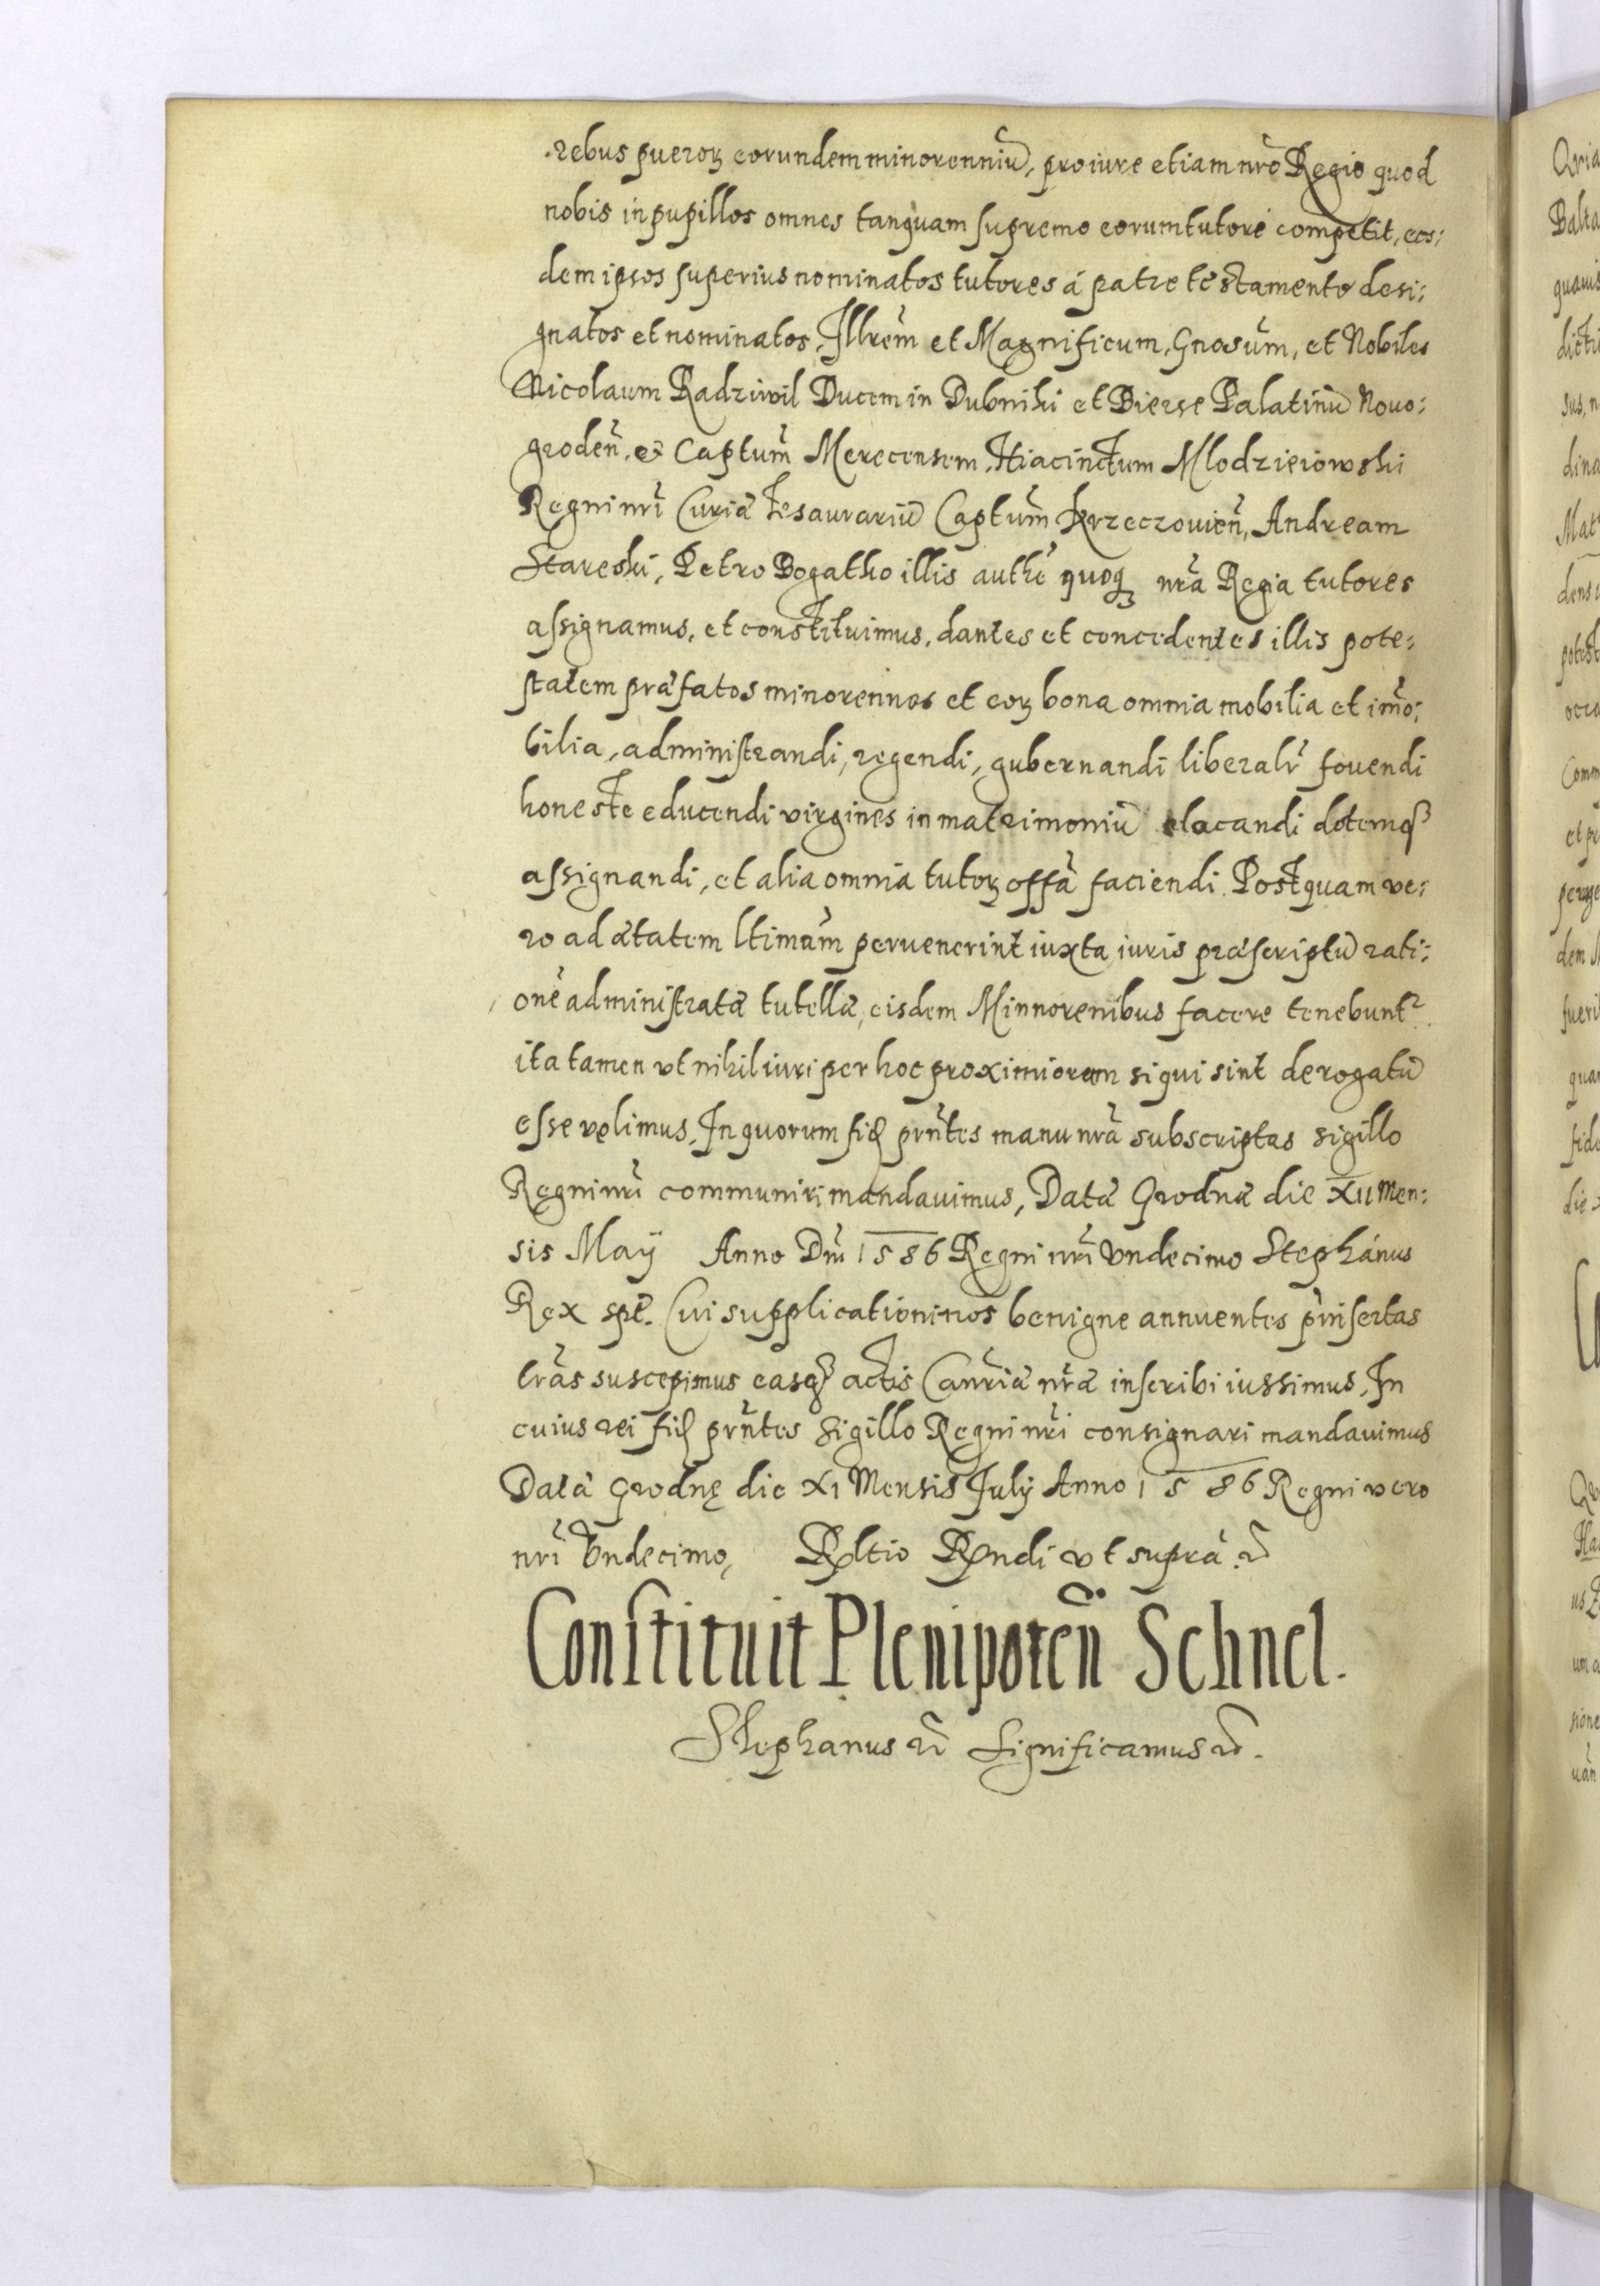 rebus pueroꝝ eorundem minorenniũ, pro iure etiam nr̃o Regio quod
nobis in pupillos omnes tanquam supremo eorum tutore competit, eos:
dem ipsos superius nominatos tutores á patre testamento desi:
gnatos et nominatos, Illrem̃ et Magnificum, Gnosum̃, et Nobiles
Nicolaum Radziwil Ducem in Dubnihi et Bierze Palatinũ Nouo:
grodeñ, et Captum̃ Merecensem, Hiacinctum Mlodzieiowski
Regni nr̃i Curiæ Tesaurariũ Captum̃ Krzeczouieñ, Andream
Stareski, Petro Bogatho illis authẽ quoqꝫ nr̃a Regia tutores
assignamus, et constituimus, dantes et concedentes illis pote:
statem præfatos minorennes et eoꝝ bona omnia mobilia et im̃o:
bilia, administrandi, regendi, gubernandi liberalr̃ fouendi
honeste educendi virgines in matrimoniũ elocandi dotemqꝫ
assignandi, et alia omnia tutoꝝ offã faciendi. Postquam ve:
ro ad ætatem ltimam̃ peruenerint iuxta iuris præscriptũ rati:
onẽ administratæ tutellæ, eisdem Minnorenibus facere tenebuntr
ita tamen vt nihil iuri per hoc proximiorum si qui sint derogatũ
esse volimus, In quorum fid prñtes manu nr̃a subscriptas sigillo
Regni nr̃i communiri mandauimus, Datæ Grodnæ die XII Men:
sis Maÿ Anno Dnĩ 1586 Regni nr̃i Vndecimo Stephánus
Rex spt. Cui supplicationi nos benigne annuentes pr̃insertas
lr̃as suscepimus easqꝫ actis Canr̃iæ nr̃æ inscribi iussimus, In
cuius rei fid prñtes Sigillo Regni nr̃i consignari mandauimus
Datæ Grodnę die XI Mensis Julÿ Anno 1586 Regni vero
nr̃i Vndecimo, Rltio Rndi vt supra
Constituit Plenipoten̈ Schnel.
Stephanus Significamus